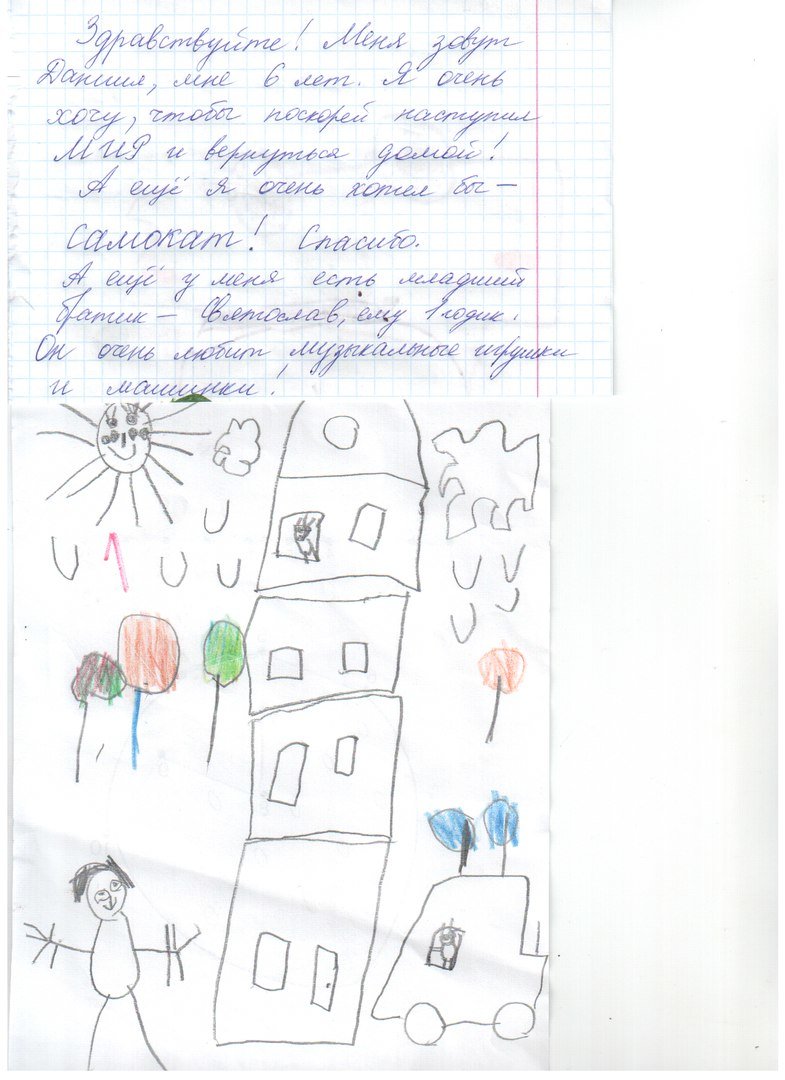 Здравствуйте! Меня зовут
Даниил, мне 6 лет. Я очень
хочу, чтобы поскорей наступил
МИР и вернуться домой!
А ещё я очень хотел бы —
самокат! Спасибо.
А ещё у меня есть младший
братик — Святослав, ему 1 годик.
Он очень любит музыкальные игрушки
и машинки!
1